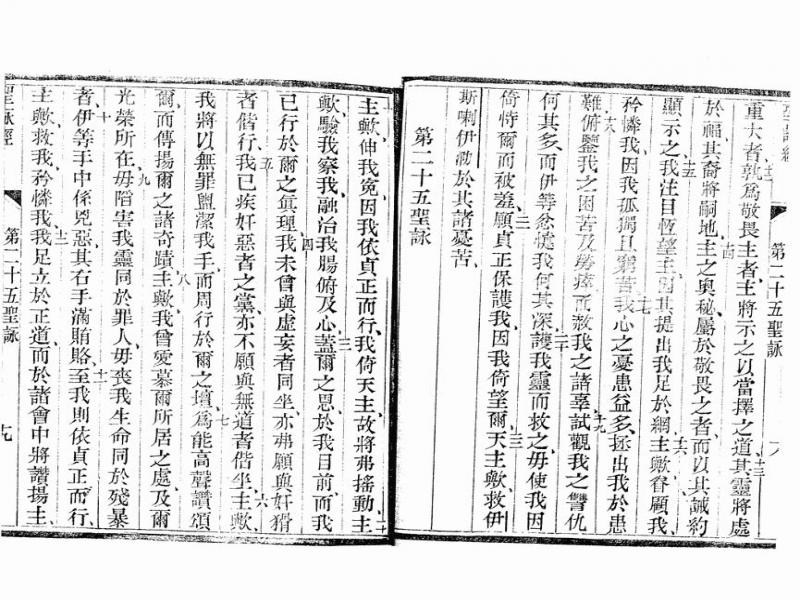 聖詠經
第二十五聖詠
十二
重大者孰爲敬畏主者主將示之以當擇之道其靈將處十三
於幅其裔將嗣地主之奧秘屬於敬畏之者而以其誠約十四
顯示之我注目恆望主因其提出我足於網主歟眷顧我十五十六
矜憐我因我孤獨且窮苦我心之憂患益多拯出我於患十七
難俯鑒我之困苦及勞瘁而赦我之諸辜試觀我之讐仇十九
何其多而伊等忿憾我何其深護我靈而救之毋使我因二十
倚恃爾而被羞願貞正保護我因我倚望爾天主歟救伊二一二二
斯喇伊勒於其諸憂苦
第二十五聖詠
主歟伸我冤因我依貞正而行我倚天主故將弗搖動主二
歟驗我察我融治我腸俯及心蓋爾之恩於我目前而我三
已行於爾之真理我未曾與虛妄者同坐亦弗願與奸猾四
者偕行我已疾奸惡者之黨亦不願與無道者偕坐主歟五六
我將以無罪盥潔我手而周行於爾之壇爲能高聲讚頌七
爾而傳揚爾之諸奇蹟主歟我曾愛慕爾所居之處及爾八
光榮所在毋陷害我靈同於罪人毋喪我生命同於殘暴九
者伊等手中係兇惡其右手滿賄賂至我則依貞正而行十十一
主歟救我矜憐我我足立於正道而於諸會中將讚揚主十二
聖詠經
第二十五聖詠
十九